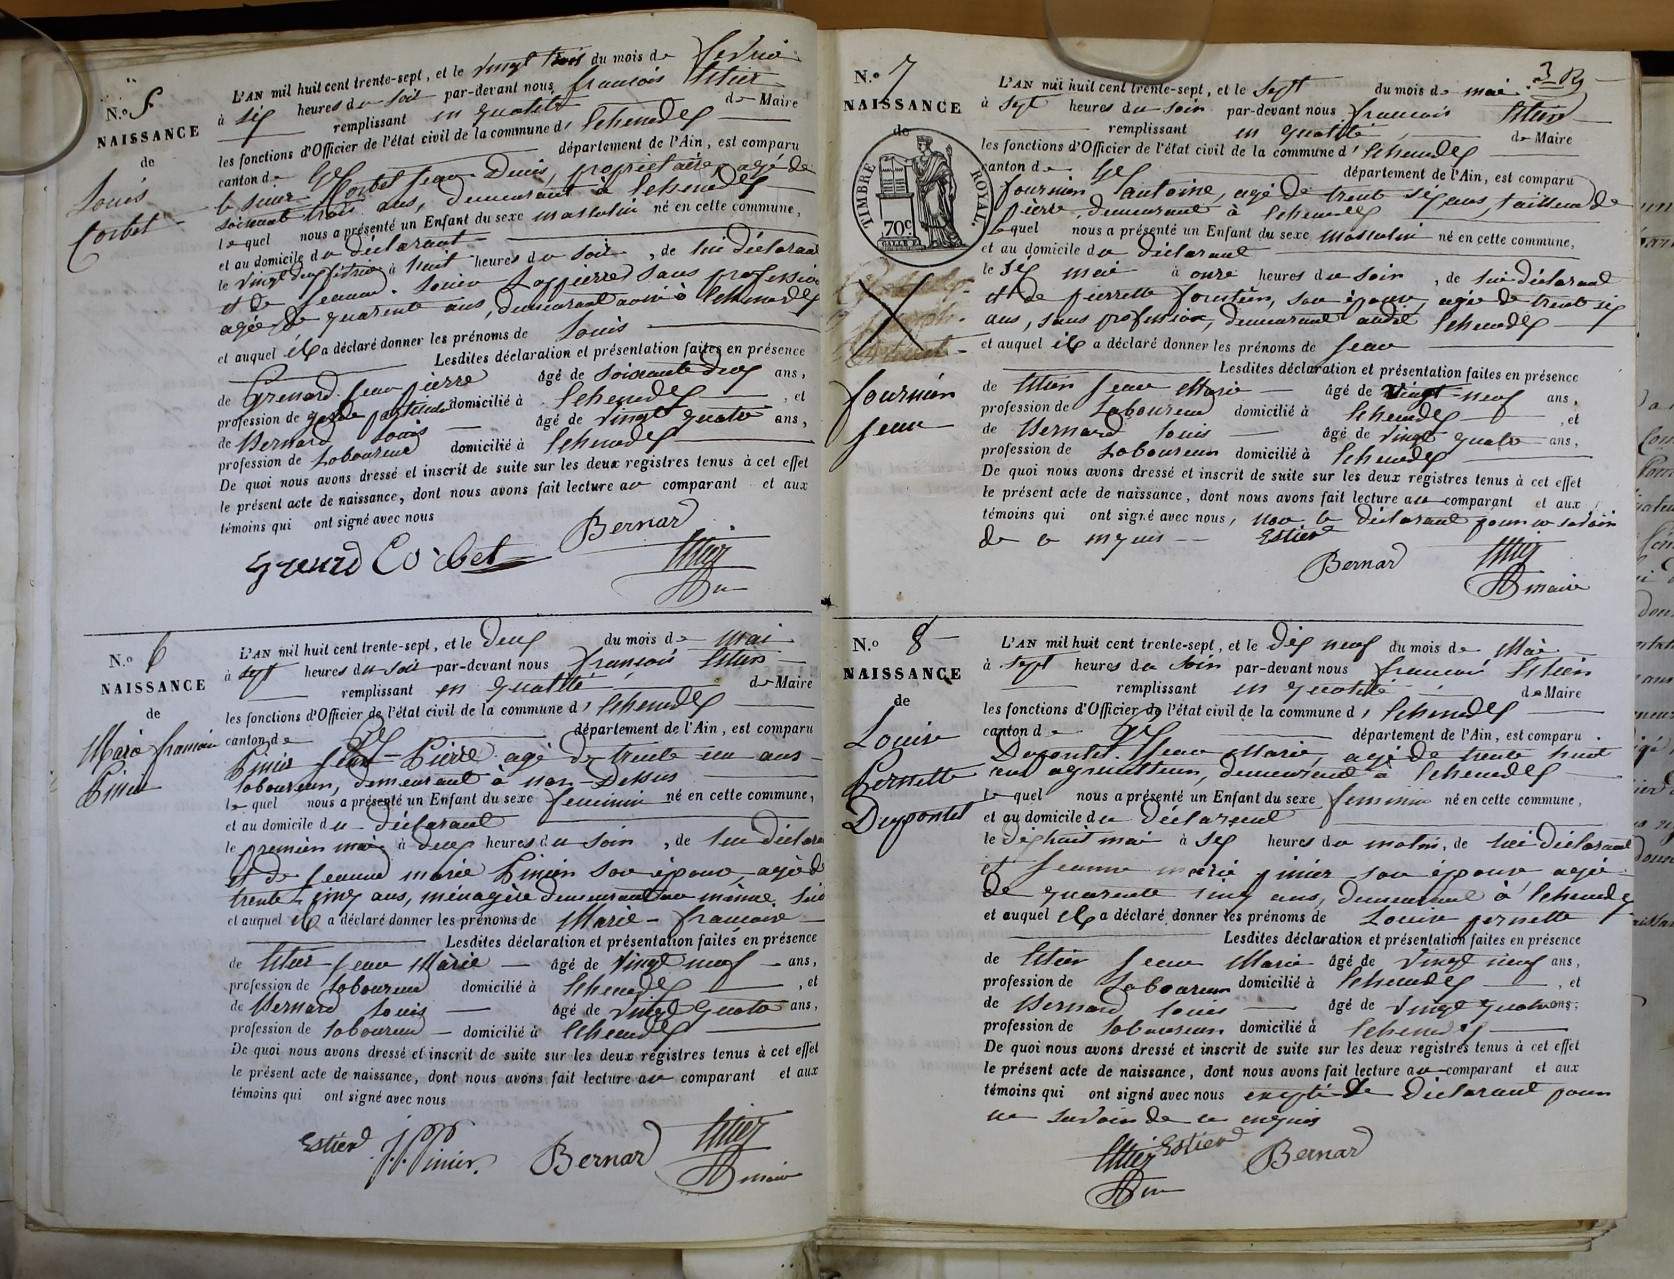 N.º 5
NAISSANCE
de
Louis
Corbet
L'AN mil huit cent trente-sept, et le vingt trois du mois de fevrier
à six heures du soir par-devant nous francois Estier
remplissant en qualité de Maire
les fonctions d'Officier de l'état civil de la commune d' Echenevex
canton de Gex département de l'Ain, est comparu
le sieur Corbet Jean Denis, propriétaire, agé de
soixante trois ans, demeurant à Echenevex
lequel nous a présenté un Enfant du sexe masculin né en cette commune,
et au domicile du déclarant
le vingt deux fevrier à huit heures du soir, de lui déclarant
et de Jeanne Lapierre sans profession
agée de quarante ans, demeurant aussi à Echenevex
et auquel il a déclaré donner les prénoms de Louis
Lesdites déclaration et présentation faites en présence
de Grenard Jean pierre âgé de soixante deux ans,
profession de garde particulier domicilié à Echenevex, et
de Bernard Louis âgé de vingt quatre ans,
profession de Laboureur domicilié à Echenevex
De quoi nous avons dressé et inscrit de suite sur les deux registres tenus à cet effet
le présent acte de naissance, dont nous avons fait lecture au comparant et aux
témoins qui ont signé avec nous
Bernard
Grenard Corbet Estier
N.º 6
NAISSANCE
de
Marie francoise
Pinier
L'AN mil huit cent trente-sept, et le deux du mois de mai
à sept heures du soir par-devant nous francois Estier
remplissant en qualité de Maire
les fonctions d'Officier de l'état civil de la commune d' Echenevex
canton de Gex département de l'Ain, est comparu
Pinier Jean-Pierre agé de trente un ans
laboureur, demeurant à Mon-Dessus
lequel nous a présenté un Enfant du sexe feminin né en cette commune,
et au domicile du déclarant
le premier mai à deux heures du soir, de lui déclarant
et de Jeanne marie Pinier son épouse, agée de
trente cinq ans, ménagère demeurant au même lieu
et auquel il a déclaré donner les prénoms de Marie-francoise
Lesdites déclaration et présentation faites en présence
de Estier Jean Marie âgé de vingt neuf ans,
profession de laboureur domicilié à Echenevex, et
de Bernard Louis âgé de vingt quatre ans,
profession de laboureur domicilié à Echenevex
De quoi nous avons dressé et inscrit de suite sur les deux registres tenus à cet effet
le présent acte de naissance, dont nous avons fait lecture au comparant et aux
témoins qui ont signé avec nous
Estier J. P. Pinier. Bernard Estier
maire
3
N.º 7
NAISSANCE
de
TIMBRE ROYAL.
70c
fournier
Jean
L'AN mil huit cent trente-sept, et le sept du mois de mai
à sept heures du soir par-devant nous francois Estier
remplissant en qualité de Maire
les fonctions d'Officier de l'état civil de la commune d' Echenevex
canton de Gex département de l'Ain, est comparu
fournier antoine, agé de trente six ans, tailleur de
pierre, demeurant à Echenevex
lequel nous a présenté un Enfant du sexe masculin né en cette commune,
et au domicile du déclarant
le six mai à onze heures du soir, de lui déclarant
et de pierrette fournier, son épouse, agée de trente six
ans, sans profession, demeurant audit Echenevex
et auquel il a déclaré donner les prénoms de Jean
Lesdites déclaration et présentation faites en présence
de Estier Jean Marie âgé de vingt-neuf ans,
profession de Laboureur domicilié à Echenevex, et
de Bernard Louis âgé de vingt quatre ans,
profession de Laboureur domicilié à Echenevex
De quoi nous avons dressé et inscrit de suite sur les deux registres tenus à cet effet
le présent acte de naissance, dont nous avons fait lecture au comparant et aux
témoins qui ont signé avec nous, non le déclarant pour ne savoir
de ce enquis Estier
Bernard Estier
maire
N.º 8
NAISSANCE
de
Louise
Pernette
Dupontet
L'AN mil huit cent trente-sept, et le dix neuf du mois de Mai
à sept heures du soir par-devant nous francois Estier
remplissant en qualité de Maire
les fonctions d'Officier de l'état civil de la commune d' Echenevex
canton de Gex département de l'Ain, est comparu
Dupontet Jean Marie, agé de trente huit
ans agriculteur, demeurant à Echenevex
lequel nous a présenté un Enfant du sexe feminin né en cette commune,
et au domicile du déclarant
le dix huit mai à six heures du matin, de lui déclarant
et Jeanne marie pinier son épouse agée
de quarante cinq ans, demeurant à Echenevex
et auquel il a déclaré donner les prénoms de Louise pernette
Lesdites déclaration et présentation faites en présence
de Estier Jean Marie âgé de vingt neuf ans,
profession de Laboureur domicilié à Echenevex, et
de Bernard Louis âgé de vingt quatre ans,
profession de laboureur domicilié à Echenevex
De quoi nous avons dressé et inscrit de suite sur les deux registres tenus à cet effet
le présent acte de naissance, dont nous avons fait lecture au comparant et aux
témoins qui ont signé avec nous excepté le déclarant pour
ne savoir de ce enquis
Estier Estier Bernard